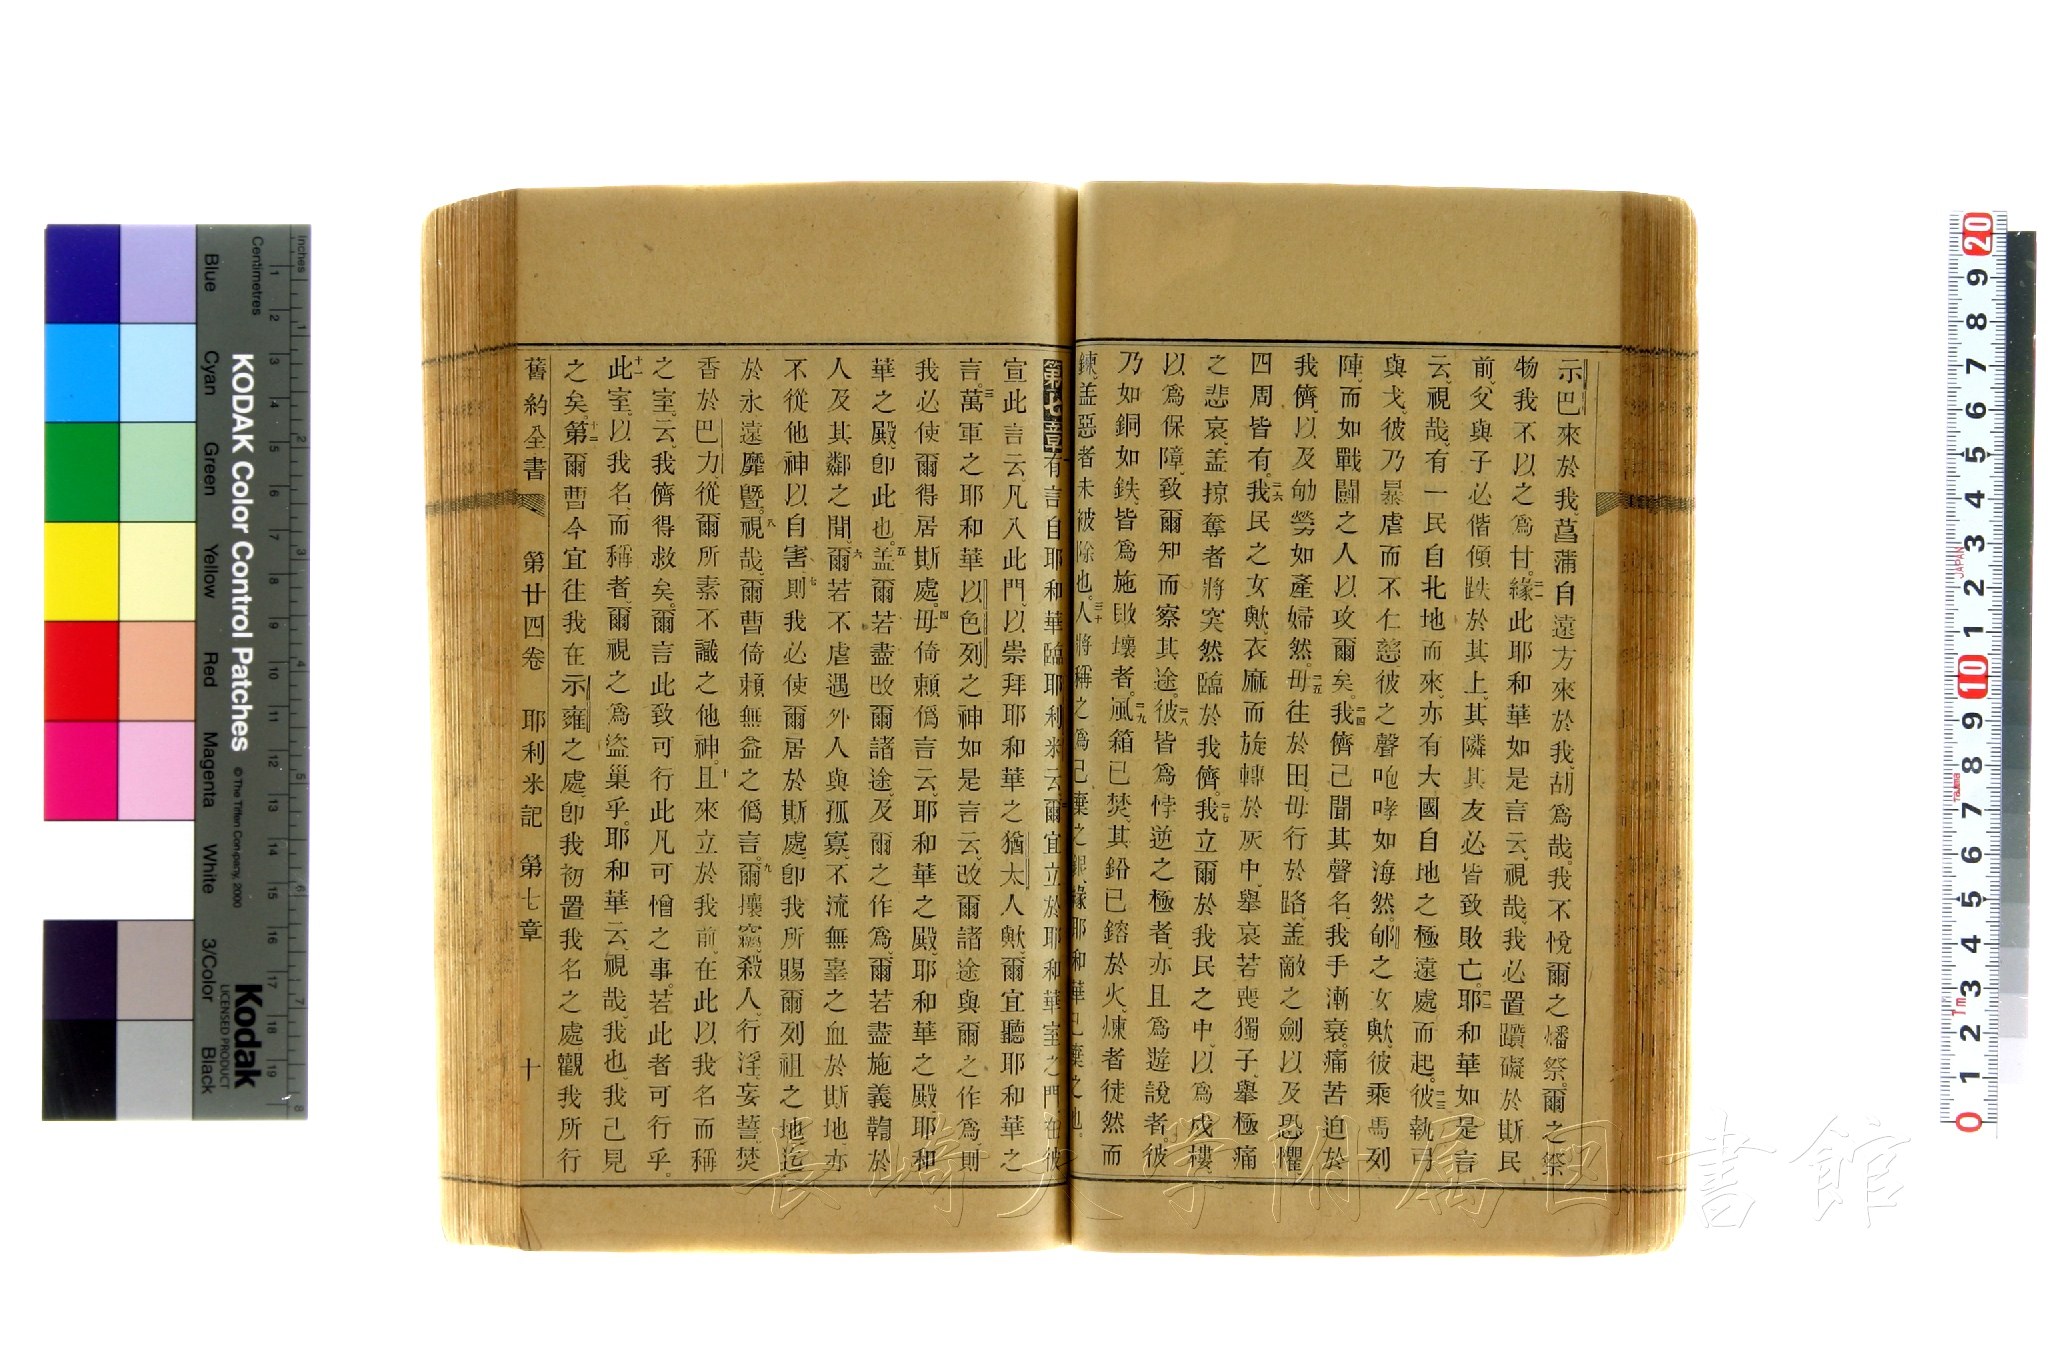 示巴來於我、菖蒲自遠方來於我、胡爲哉。我不悅爾之燔祭、爾之祭
物我不以之爲甘。二一緣此耶和華如是言云、視哉、我必置躓礙於斯民
前、父與子必偕傾跌於其上、其隣其友必皆致敗亡。二二耶和華如是言
云、視哉、有一民自北地而來、亦有大國自地之極遠處而起。二三彼執弓
與戈、彼乃暴虐而不仁慈、彼之聲咆哮如海然、郇之女歟、彼乘馬列
陣、而如戰鬭之人以攻爾矣。二四我儕已聞其聲名、我手漸衰、痛苦迫於
我儕、以及劬勞如產婦然。二五毋往於田、毋行於路、盖敵之劍以及恐懼、
四周皆有。二六我民之女歟、衣麻而旋轉於灰中、舉哀若喪獨子、舉極痛
之悲哀、盖掠奪者將突然臨於我儕。二七我立爾於我民之中、以爲戍樓、
以爲保障、致爾知而察其途。二八彼皆爲悖逆之極者、亦且爲遊說者、彼
乃如銅如鉄、皆爲施敗壞者。二九風箱已焚、其鉛已鎔於火、煉者徒然而
鍊、盖惡者未被除也。三十人將稱之爲已棄之銀、緣耶和華已棄之也。
第七章 一有言自耶和華臨耶利米云、二爾宜立於耶和華室之門、在彼
宣此言云、凡入此門、以崇拜耶和華之猶太人歟、爾宜聽耶和華之
言。三萬軍之耶和華以色列之神如是言云、改爾諸途與爾之作爲、則
我必使爾得居斯處。四毋倚賴僞言云、耶和華之殿、耶和華之殿、耶和
華之殿、卽此也。五盖爾若盡改爾諸途、及爾之作爲、爾若盡施義鞫於
人及其鄰之間、六爾若不虐遇外人與孤寡、不流無辜之血於斯地、亦
不從他神以自害、七則我必使爾居於斯處、卽我所賜爾列祖之地、迄
於永遠靡曁。八視哉、爾曹倚賴無益之僞言。九爾攘竊、殺人、行淫、妄誓、焚
香於巴力、從爾所素不識之他神。十且來立於我前、在此以我名而稱
之室。云、我儕得救矣。爾言此致可行此凡可憎之事。若此者可行乎。
十一此室、以我名、而稱者、爾視之爲盜巢乎。耶和華云、視哉、我也、我已見
之矣。十二第爾曹今宜往我在示羅之處、卽我初置我名之處、觀我所行
舊約全書 第廿四卷 耶利米記 第七章 十
KODAK Color Control Patches
© The Tiffen Company, 2000
Kodak
LICENSED PRODUCT
Inches
Centimetres
Blue Cyan Green Yellow Red Magenta White 3/Color Black
JAPAN
長崎大学附属図書館